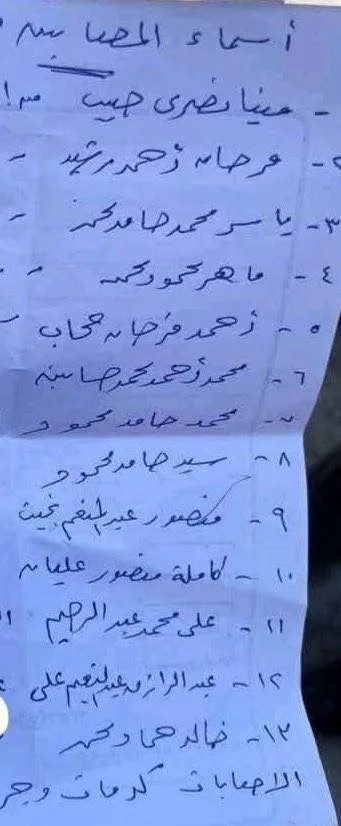 أسماء المصابين
- مينا نصرى حبيب
٢- فرحان أحمد رشيد -
٣- ياسر محمد حامد محمد -
٤- ماهر محمود محمد -
٥- أحمد فرحان حجاب
٦- محمد أحمد محمد حسانين
٧- محمد حامد محمود
٨- سيد حامد محمود
٩- منصور عبد المنعم بخيت
١٠- كاملة منصور عليان
١١- على محمد عبد الرحيم
١٢- عبد الرازق عبد المنعم على
١٣- خالد حماد محمد
الاصابات كدمات وجر